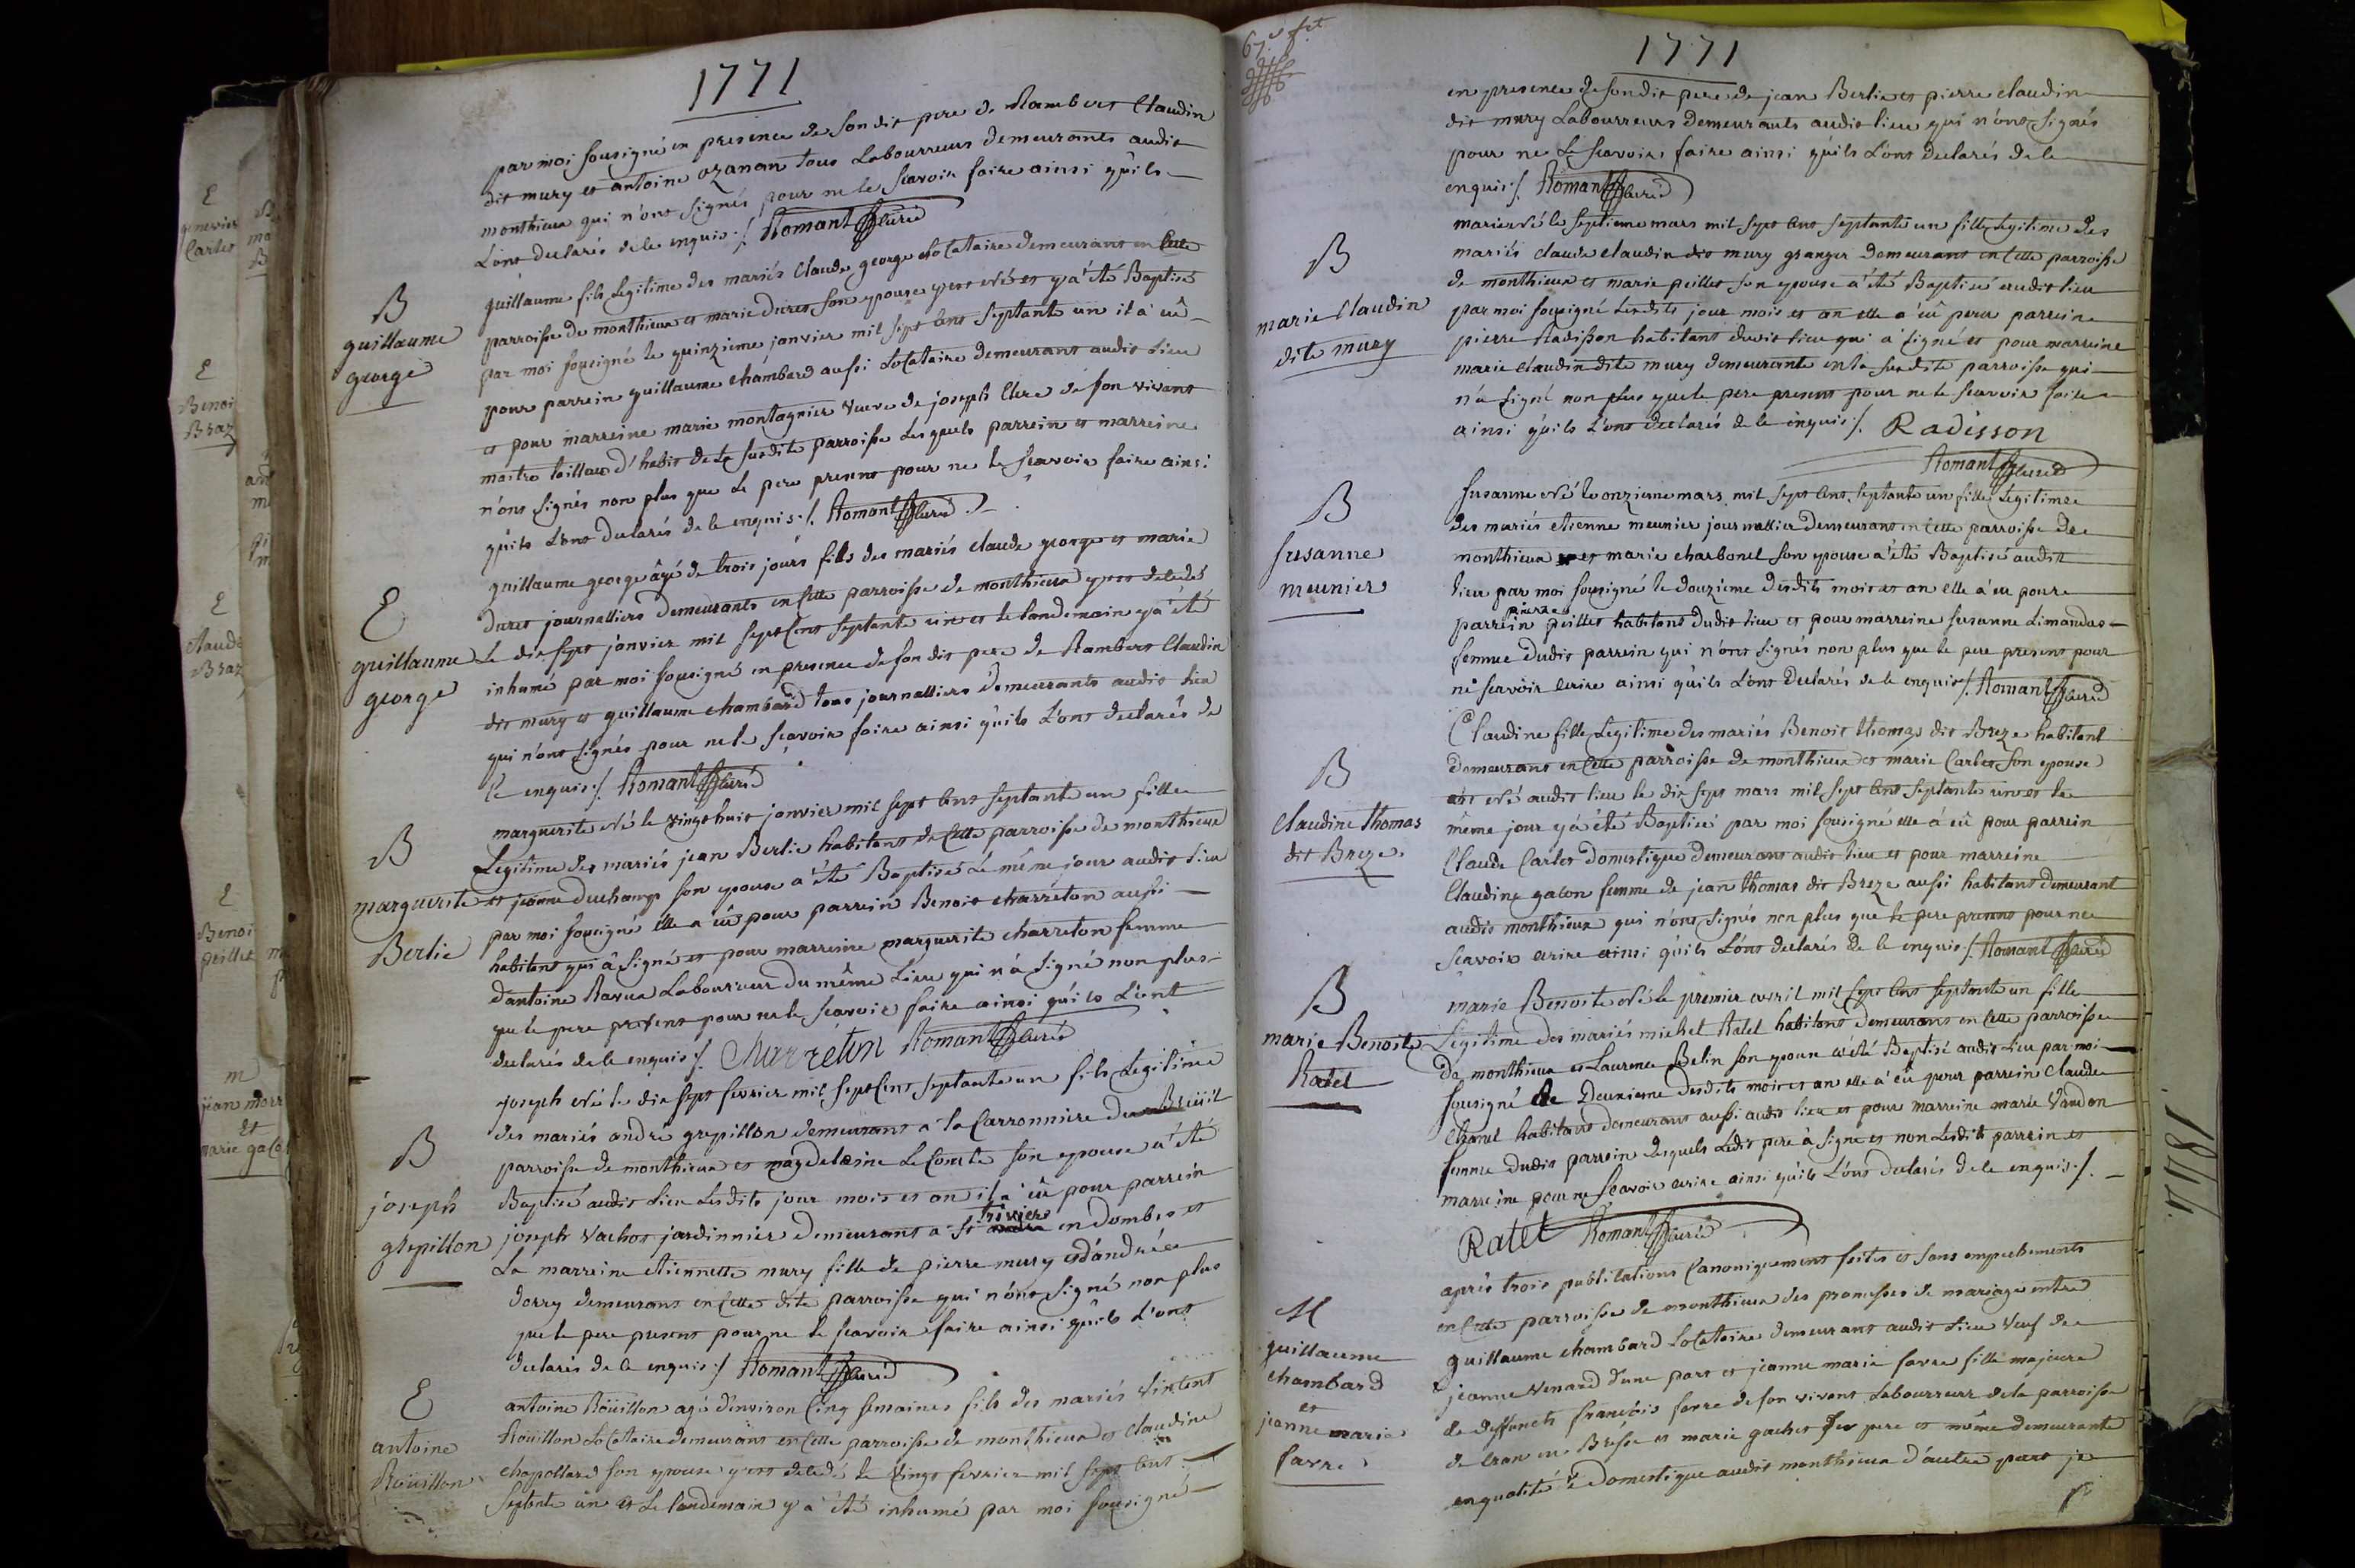 1771
par moi sousigné en presence de son dit pere de Rambert Claudin
dit mury et antoine ozanan tous Labourreurs demeurants audit
monthieux qui n'ont signés pour ne le scavoir faire ainsi qu'ils
L'ont declarés de ce enquis ./. Romant curé
B
guillaume
george
guillaume fils Legitime des mariés Claude george Locataire demeurant en cette
parroisse de monthieux et marie duret son epouse y est né et y a été Baptisé
par moi sousigné le quinzieme janvier mil sept cent septante un il a eû
pour parrein guillaume chambard aussi Locataire demeurant audit Lieu
et pour marreine marie montagnier veuve de joseph Clere de son vivant
maitre tailleur d'habit de la susdite parroisse Lesquels parrein et marreine
n'ont signés non plus que Le pere present pour ne le scavoir faire ainsi
qu'ils L'ont declarés de ce enquis ./. Romant curé
E
guillaume
george
guillaume george âgé de trois jours fils des mariés claude george et marie
duret journalliers demeurants en cette parroisse de monthieux y est decedé
Le dix sept janvier mil sept cent septante un et le landemain y a été
inhumé par moi sousigné en presence de son dit pere de Rambert Claudin
dit mury et guillaume chambard tous journalliers demeurants audit Lieu
qui n'ont signés pour ne le scavoir faire ainsi qu'ils L'ont declarés de
ce enquis ./. Romant curé
B
marguerite
Berlie
marguerite né le vingt huit janvier mil sept cent septante un fille
Legitime des mariés jean Berlie habitant de cette parroisse de monthieux
et jeanne duchamp son epouse a été Baptisé Le même jour audit Lieu
par moi sousigné elle a eû pour parrein Benoit charreton aussi
habitant qui a signé et pour marreine marguerite charreton femme
d'antoine Ravux Labourreur du même Lieu qui n'a signé non plus
que le pere present pour ne le scavoir faire ainsi qu'ils L'ont
declarés de ce enquis ./. Charreton Romant curé
B
joseph
grepillon
joseph né le dix sept fevrier mil sept cent septante un fils Legitime
des mariés andré grepillon demeurant a la Carronniere du Breüil
parroisse de monthieux et magdeleine Le Comte son epouse a été
Baptisé audit Lieu Lesdits jour mois et an il a eû pour parrein
joseph vachot jardinnier demeurant a St trivier en Dombes et
La marreine etiennette mury fille de pierre mury et d'andrée
dorry demeurant en cette dite parroisse qui n'ont signé non plus
que le pere present pour ne le scavoir faire ainsi qu'ils L'ont
declarés de ce enquis ./. Romant curé
E
antoine
Roüillon
antoine Roüillon agé d'environ cinq semaines fils des mariés vincent
Roüillon Locataire demeurant en cette parroisse de monthieux et Claudine
chapollard son epouse y est decedé le vingt fevrier mil sept cent
septante un et Le landemain y a été inhumé par moi sousigné
1771
en presence de son dit pere de jean Berlie et pierre claudin
dit mury Labourreurs demeurants audit lieu qui n'ont signés
pour ne Le scavoir faire ainsi qu'ils L'ont declarés de ce
enquis ./. Romant curé
B
marie Claudin
dite mury
marie né le septieme mars mil sept cent septante un fille Legitime des
mariés claude claudin dit mury granger demeurant en cette parroisse
de monthieux et marie peillet son epouse a été Baptisé audit lieu
par moi sousigné Lesdits jour mois et an elle a eû pour parrein
pierre Radisson habitant dudit lieu qui a signé et pour marreine
marie claudin dite mury demeurante en la susdite parroisse qui
n'a signé non plus que le pere present pour ne le scavoir faire
ainsi qu'ils L'ont declarés de ce enquis ./. Radisson
Romant curé
B
susanne
meunier
susanne né le onzieme mars mil sept cent septante un fille Legitime
des mariés etienne meunier journallier demeurant en cette parroisse de
monthieux et marie charbonel son epouse a été Baptisé audit
lieu par moi sousigné le douzieme desdits mois et an elle a eu pour
parrein pierre peillet habitant dudit lieu et pour marreine susanne Limandas
femme dudit parrein qui n'ont signés non plus que le pere present pour
ne scavoir ecrire ainsi qu'ils L'ont declarés de ce enquis ./. Romant curé
B
Claudine Thomas
dit Breze
Claudine fille Legitime des mariés Benoit thomas dit Breze habitant
demeurant en cette parroisse de monthieux et marie Carlet son epouse
est né audit lieu le dix sept mars mil sept cent septante un et le
même jour y a été Baptisé par moi sousigné elle a eû pour parrein
Claude Carlet domestique demeurant audit lieu et pour marreine
Claudine galon femme de jean thomas dit Breze aussi habitant demeurant
audit monthieux qui n'ont signés non plus que le pere present pour ne
scavoir ecrire ainsi qu'ils L'ont declarés de ce enquis ./. Romant curé
B
marie Benoite
Ratel
marie Benoite né le premier avril mil sept cent septante un fille
Legitime des mariés michel Ratel habitant demeurant en cette parroisse
de monthieux et Laurence Belin son epouse a été Baptisé audit Lieu par moi
sousigné le deuxieme desdits mois et an elle a eû pour parrein Claude
Chanel habitant demeurant aussi audit lieu et pour marreine marie Vandon
femme dudit parrein desquels Ledit pere a signé et non Lesdits parrein et
marreine pour ne scavoir ecrire ainsi qu'ils L'ont declarés de ce enquis ./.
Ratel Romant curé
M
guillaume
chambard
et
jeanne marie
favre
après trois publications Canoniquement faites et sans empechements
en cette parroisse de monthieux des promesses de mariage entre
guillaume chambard Locataire demeurant audit Lieu veuf de
jeanne venard d'une part et jeanne marie favre fille majeure
de deffunts françois favre de son vivant Labourreur de la parroisse
de Cran en Bresse et marie gachet ses pere et même demeurante
en qualité de domestique audit monthieux d'autre part je
1844